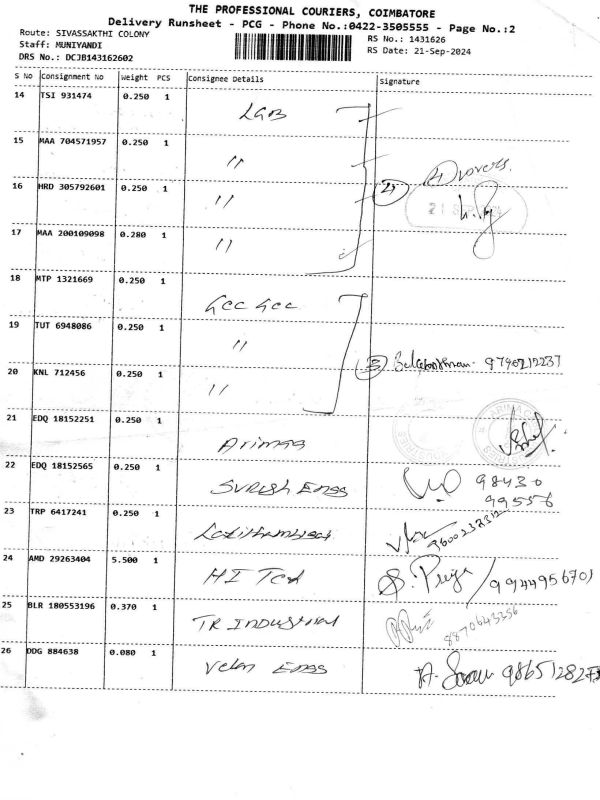 THE PROFESSIONAL COURIERS, COIMBATORE
Delivery Runsheet - PCG - Phone No.:0422-3505555 - Page No.:2
Route: SIVASSAKTHI COLONY
RS No.: 1431626
Staff: MUNIYANDI
RS Date: 21-Sep-2024
DRS No.: DCJB143162602
S No Consignment No Weight PCS Consignee Details Signature
14 TSI 931474 0.250 1 LGB
15 MAA 704571957 0.250 1 "
16 HRD 305792601 0.250 1 " 4
17 MAA 200109098 0.280 1 "
18 MTP 1321669 0.250 1 GCC GCC
19 TUT 6948086 0.250 1 "
20 KNL 712456 0.250 1 " 3 9790212237
21 EDQ 18152251 0.250 1 Arimaa
22 EDQ 18152565 0.250 1 Suresh Engs 98430
99556
23 TRP 6417241 0.250 1 9600232312
24 AMD 29263404 5.500 1 HI Tech S. Priya / 9944956701
25 BLR 180553196 0.370 1 TR Industrial 8870643356
26 DDG 884638 0.080 1 Velan Engs